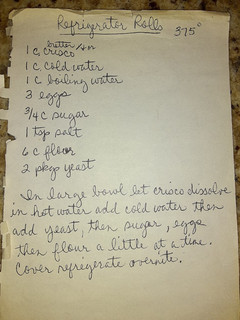 Refrigerator Rolls 375°
butter
1 c crisco
1 c cold water
1 c boiling water
3 eggs
3/4 c sugar
1 tsp salt
6 c flour
2 pkgs yeast
In large bowl let crisco dissolve
in hot water add cold water then
add yeast, then sugar, eggs
then flour a little at a time.
Cover refrigerate overnite.